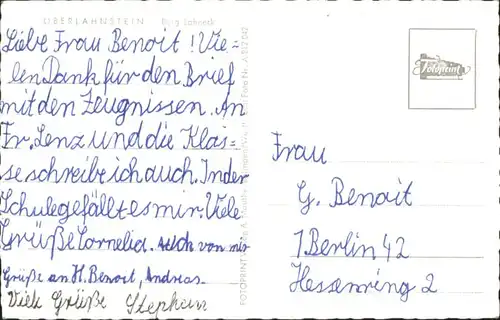 OBERLAHNSTEIN Burg Lahneck
Liebe Frau Benoit! Vie-
len Dank für den Brief
mit den Zeugnissen. An
Fr. Lenz und die Klas-
se schreib ich auch. In der
Schule gefällt es mir. Viele
Grüße Cornelia. Auch von mir
Grüße an H. Benoit, Andreas.
Viele Grüße Stephan
Fotoprint
Frau
G. Benoit
1 Berlin 42
Hessenring 2